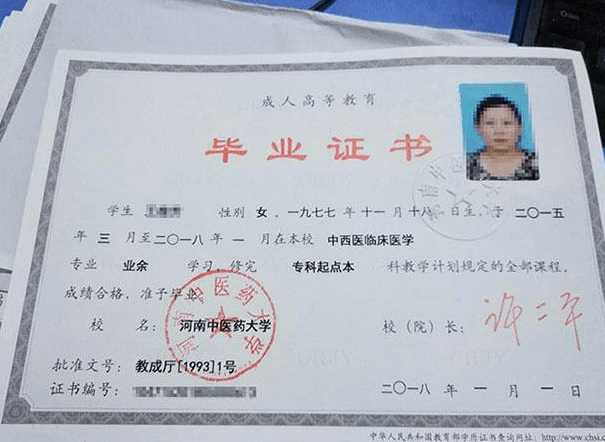 成人高等教育
毕业证书
学生 性别 女，一九七七年十一月十八日生，于二〇一五
年三月至二〇一八年一月在本校 中西医临床医学
专业 业余 学习，修完 专科起点本 科教学计划规定的全部课程，
成绩合格，准予毕业。
校 名： 河南中医药大学 校（院）长： 许二平
批准文号： 教成厅[1993]1号
证书编号：
二〇一八年一月一日
河南中医药大学
中华人民共和国教育部学历证书查询网址：http://www.chsi.